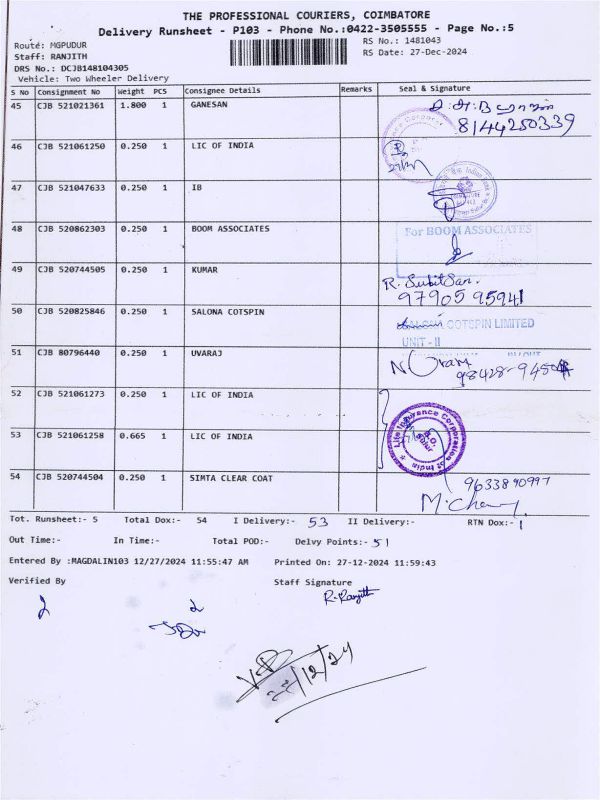 THE PROFESSIONAL COURIERS, COIMBATORE
Delivery Runsheet - P103 - Phone No.:0422-3505555 - Page No.:5
Route: MGPUDUR
RS No.: 1481043
Staff: RANJITH
RS Date: 27-Dec-2024
DRS No.: DCJB148104305
Vehicle: Two Wheeler Delivery
S No Consignment No Weight PCS Consignee Details Remarks Seal & Signature
45 CJB 521021361 1.800 1 GANESAN
8144250339
46 CJB 521061250 0.250 1 LIC OF INDIA
47 CJB 521047633 0.250 1 IB
48 CJB 520862303 0.250 1 BOOM ASSOCIATES For BOOM ASSOCIATES
49 CJB 520744505 0.250 1 KUMAR
R. SubitSan.
97905 95941
50 CJB 520825846 0.250 1 SALONA COTSPIN
SALONA COTSPIN LIMITED
UNIT - II
51 CJB 80796440 0.250 1 UVARAJ
52 CJB 521061273 0.250 1 LIC OF INDIA
Life Insurance Corporation of India
53 CJB 521061258 0.665 1 LIC OF INDIA
54 CJB 520744504 0.250 1 SIMTA CLEAR COAT
9633890997
Tot. Runsheet:- 5 Total Dox:- 54 I Delivery:- 53 II Delivery:- RTN Dox:- 1
Out Time:- In Time:- Total POD:- Delvy Points:- 51
Entered By :MAGDALIN103 12/27/2024 11:55:47 AM Printed On: 27-12-2024 11:59:43
Verified By Staff Signature
R. Ranjith